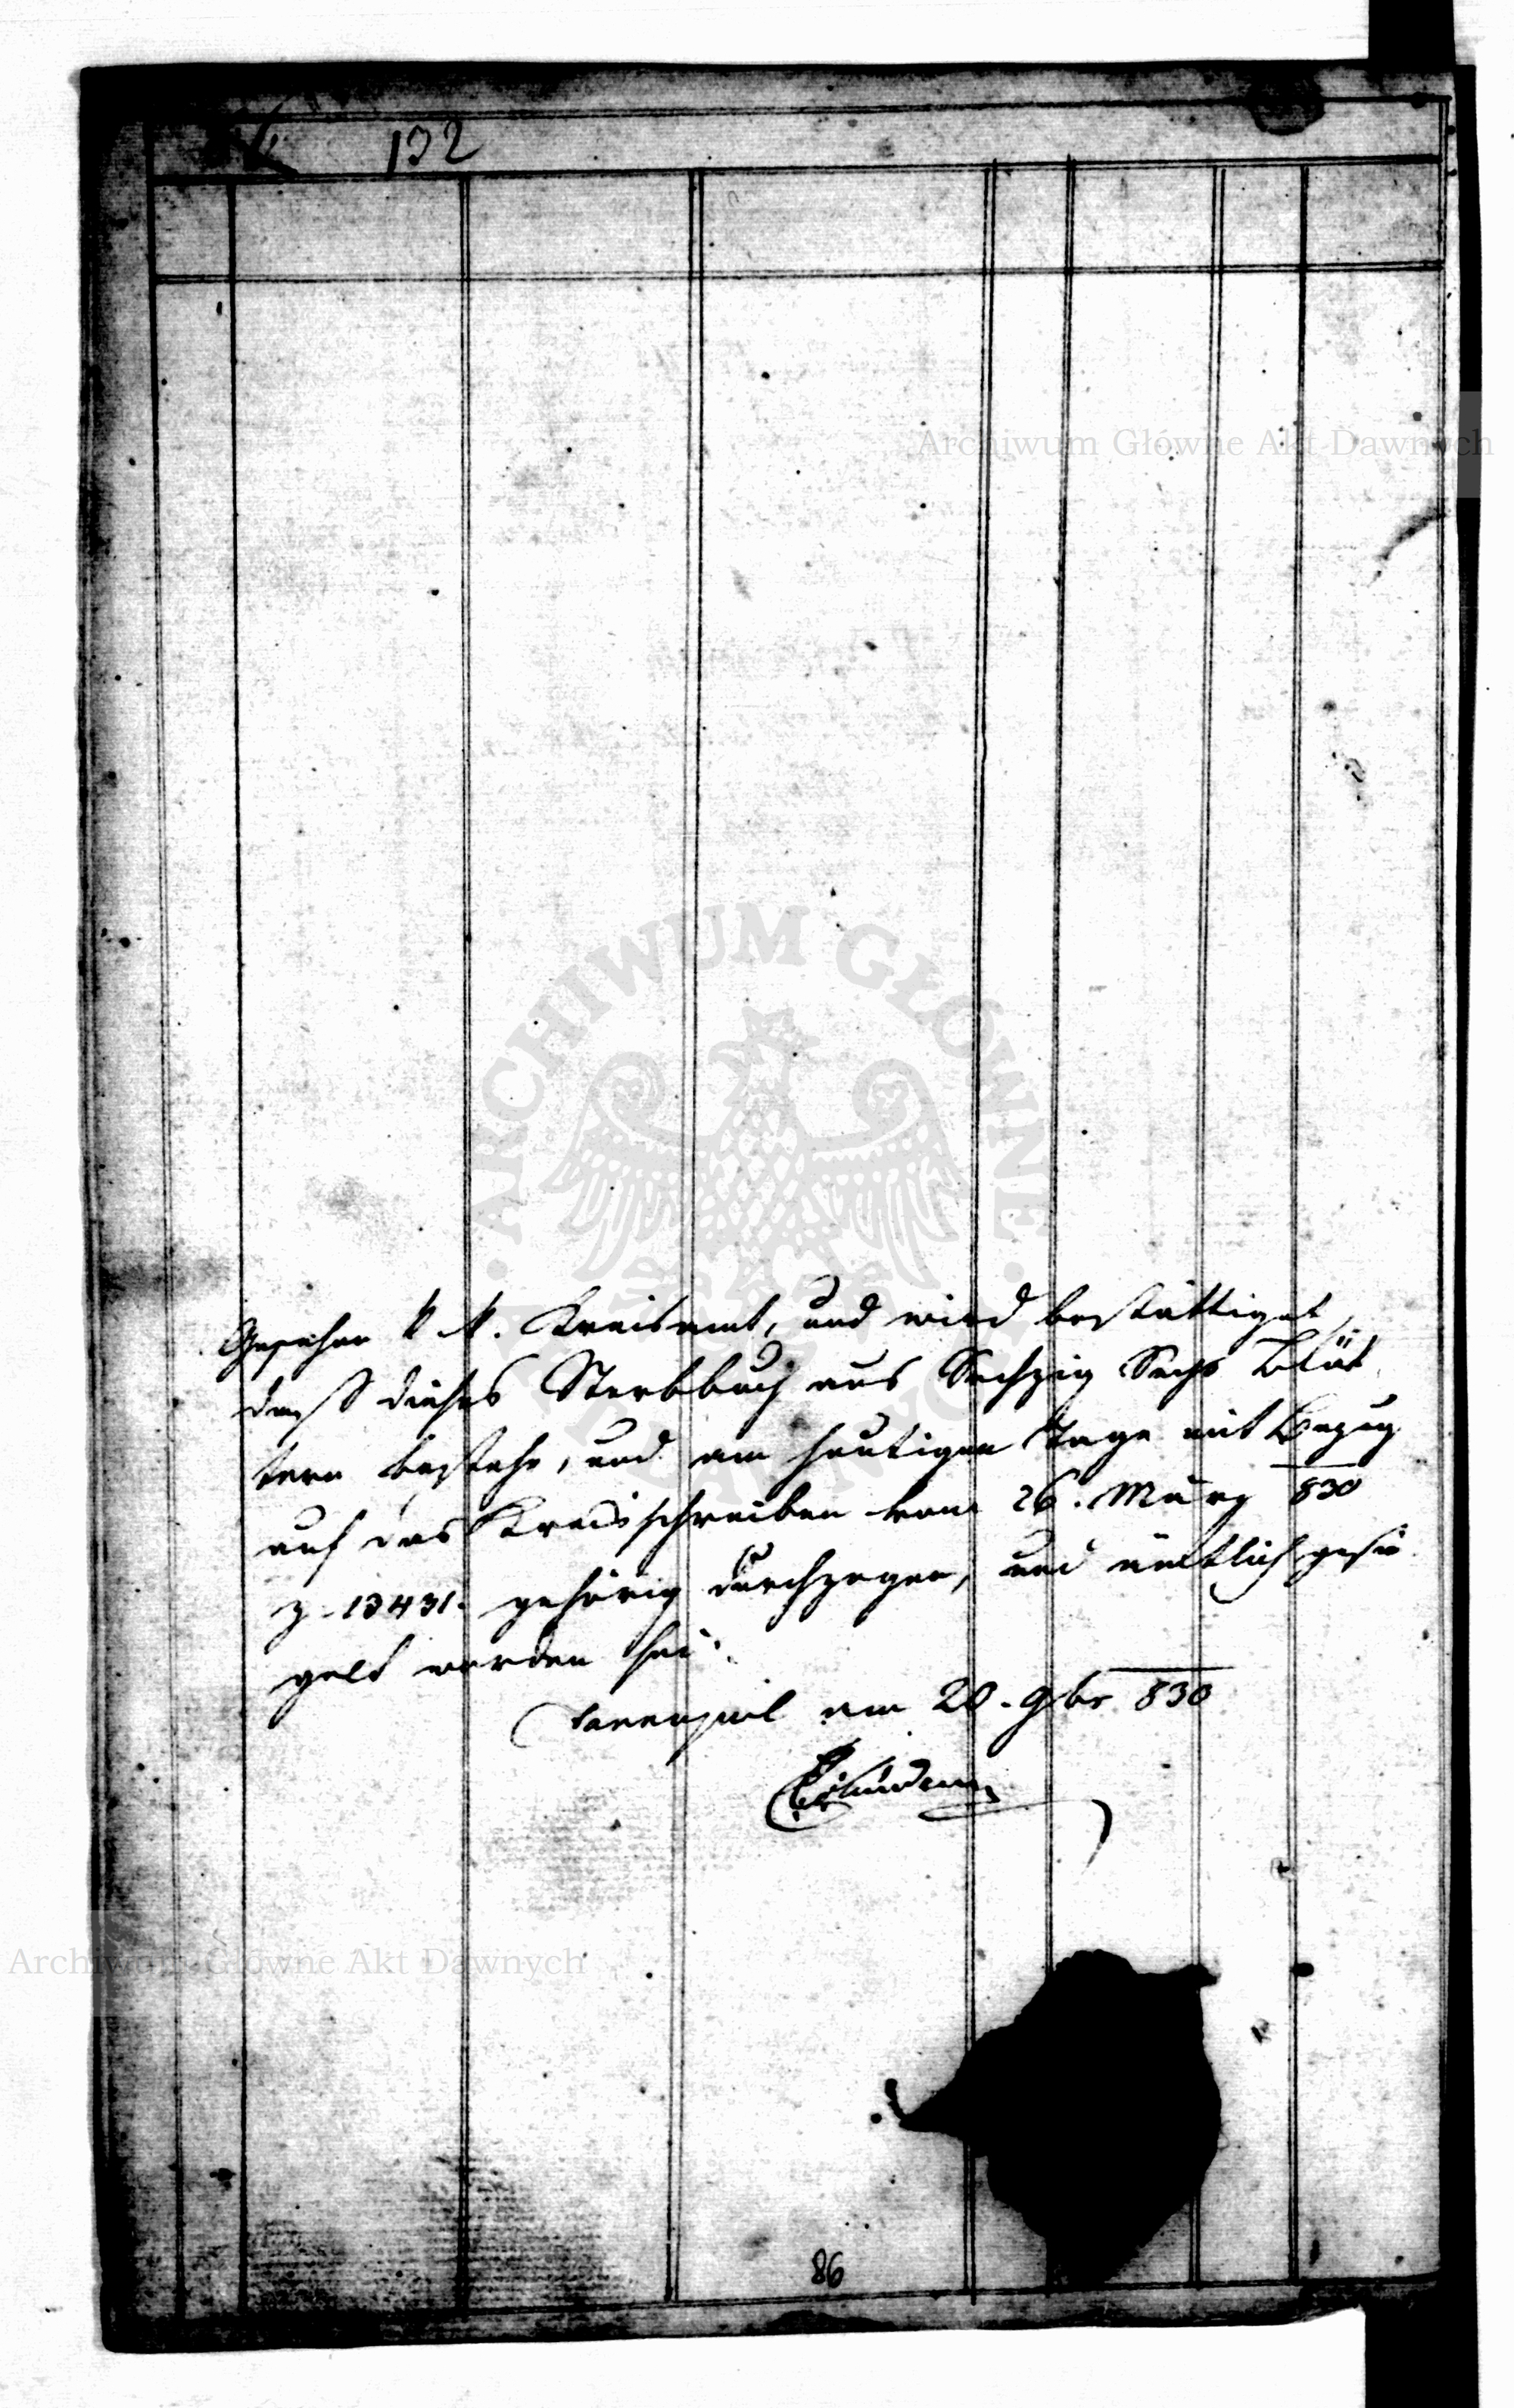 132
Archiwum Główne Akt Dawnych
ARCHIWUM GŁÓWNE
Gesehen k. k. Kreisamt, und wird bestättiget,
daß dieses Sterbbuch aus Sechzig Sechs Blät
tern bestehe, und am heutigen Tage mit Bezug
auf das Kreisschreiben vom 26. März 830
Z. 13431. gehörig durchzogen, und ämtlich gesie
gelt worden sei.
Tarnopol am 20. 9br 830
Archiwum Główne Akt Dawnych
86